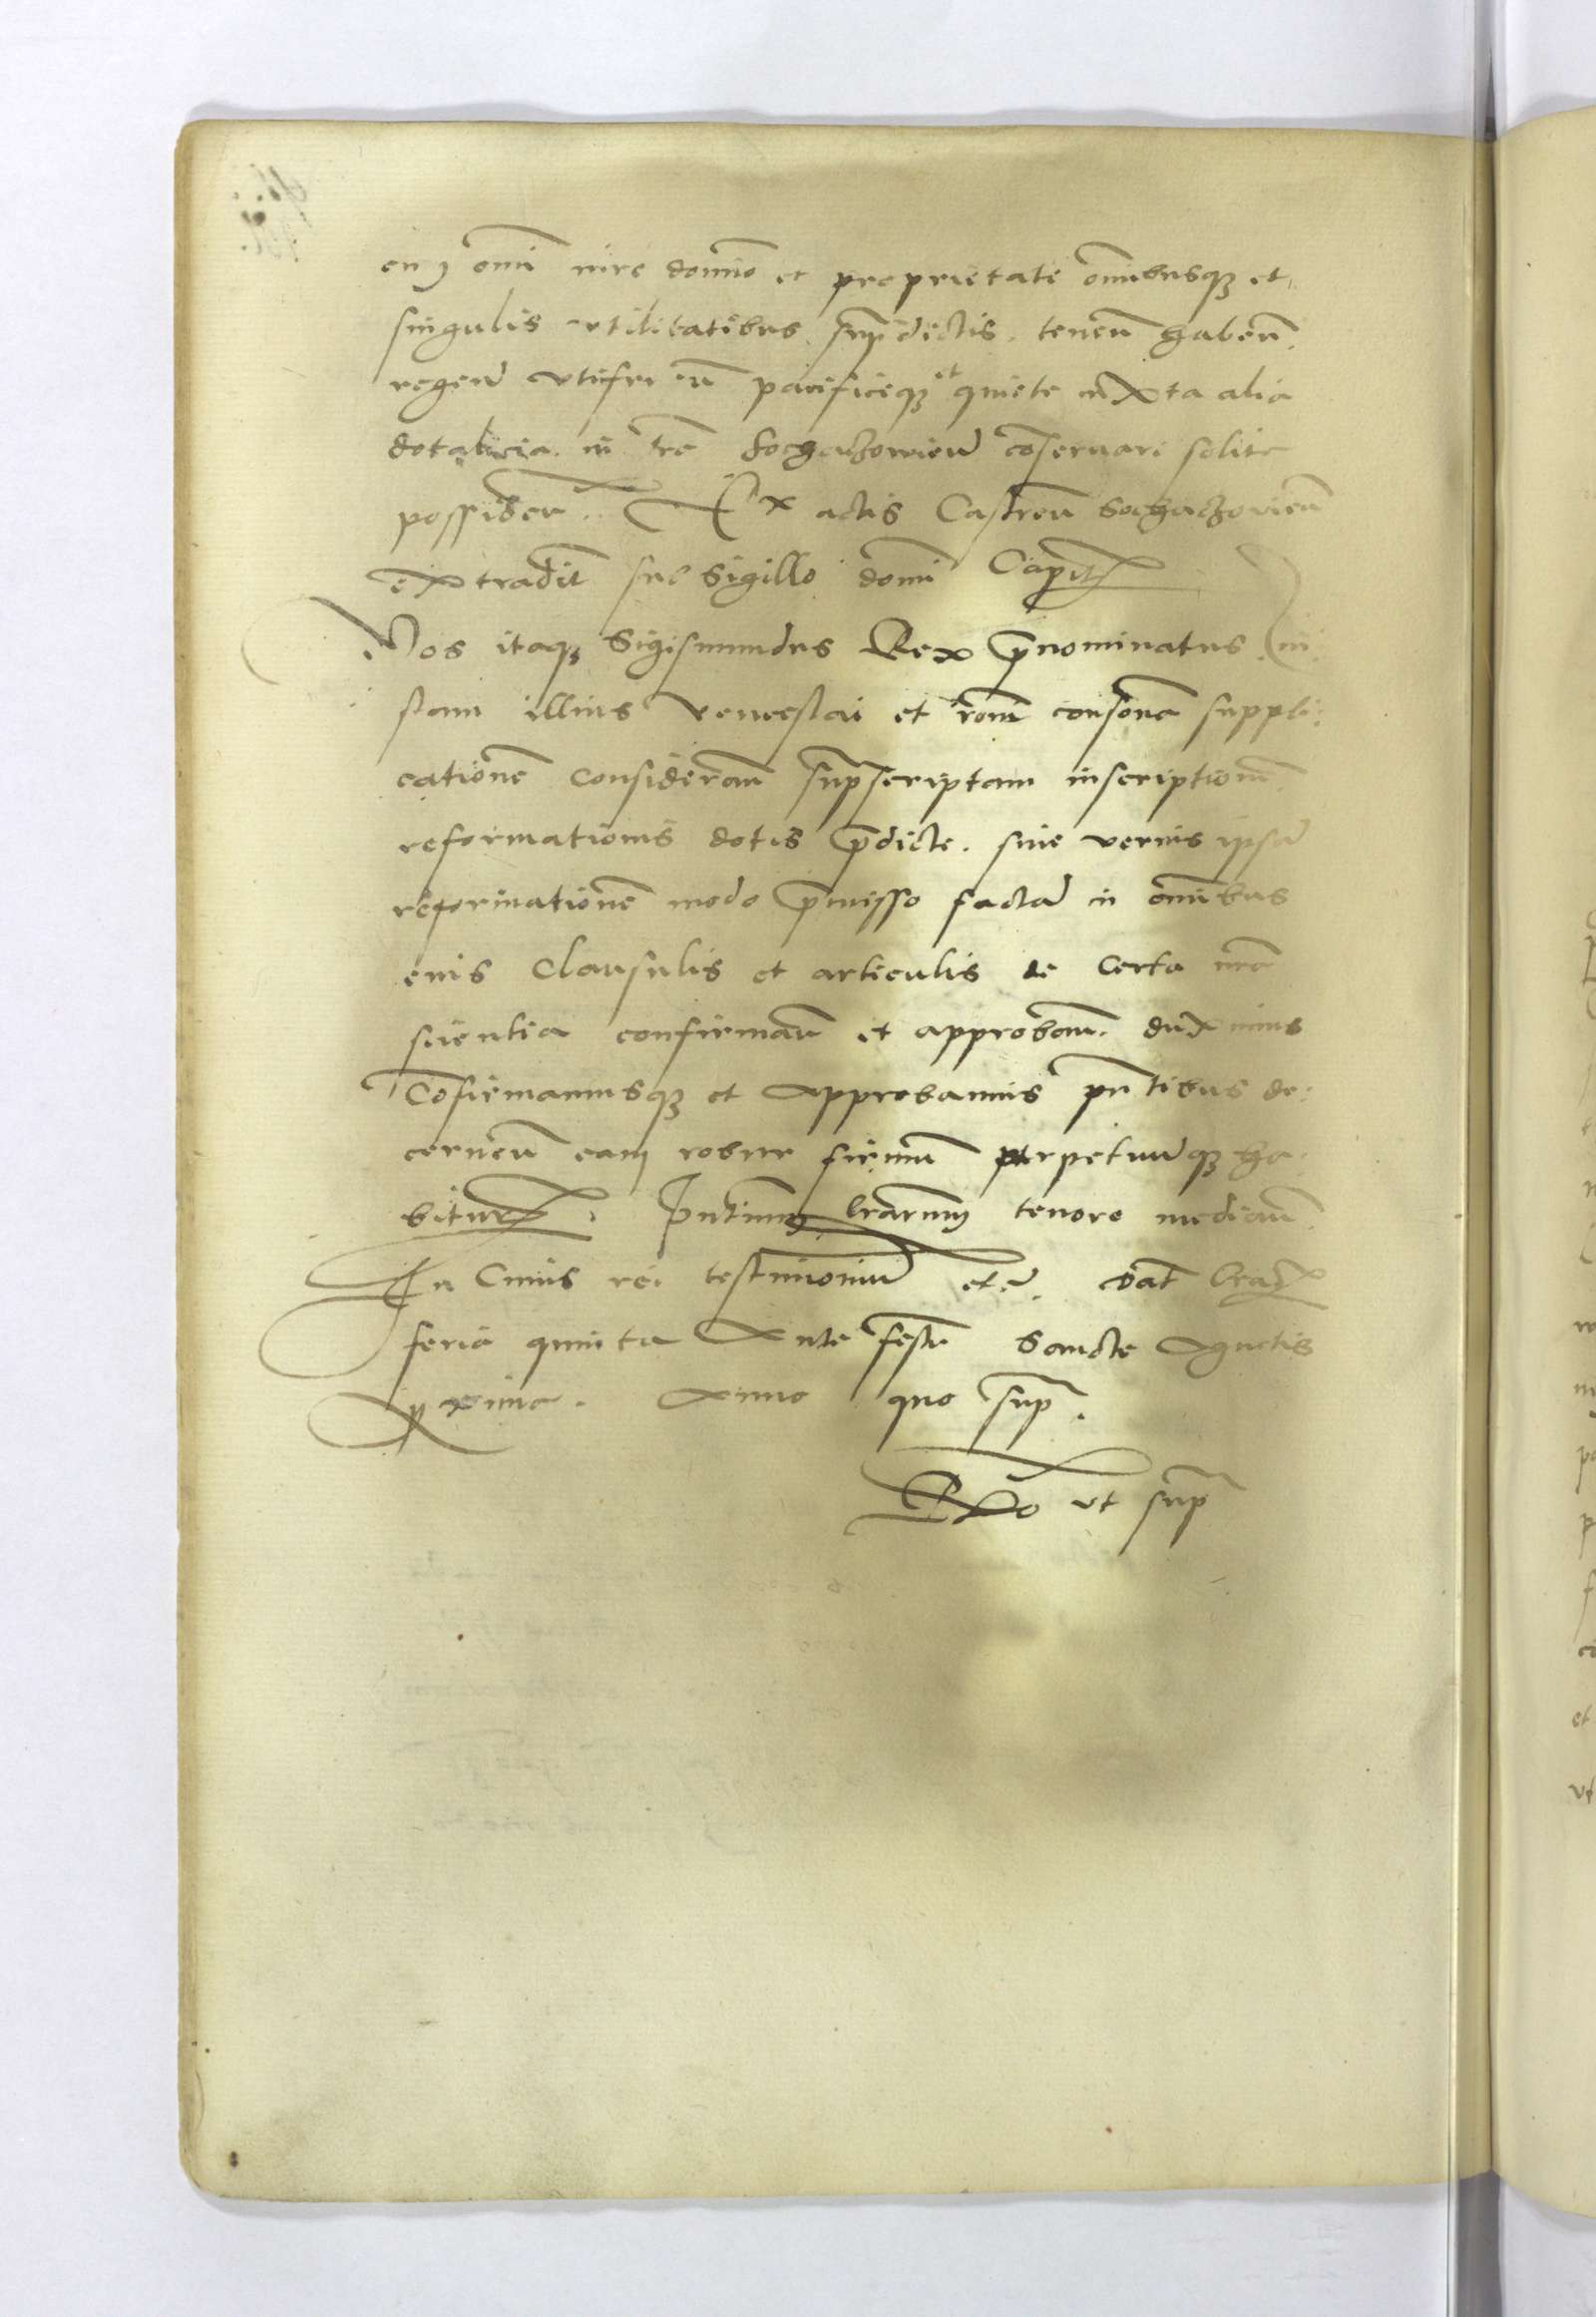 cum omni iure dominio et proprietate omnibusque et
singulis vtilitatibus supradictis. tenen haben.
regen vtifruen pacificeque et quiete iuxta alia
dotalicia in terra Sochaczowien conseruari solita
possiden. Ex actis Castren Sochaczovien
extradit sub Sigillo domini Capit
Nos itaque Sigismundus Rex prenominatus in
stam illius et roni consonam suppli:
cationem consideran suprascriptam inscriptionem
reformationis dotis predicte. siue verius ipsam
reformationem modo premisso factam in omnibus
eius Clausulis et articulis de certa nra
scientia confirman et approban. duximus
Confirmamusque et approbamus pntibus de:
cernen eam robur firmum perpetuumque ha
bituram. Pntium lrarum tenore median.
In Cuius rei testimonium etc. Dat
feria quinta Ante festum Sancte Agnetis
proxima. Anno quo supra.
Rlo vt supra